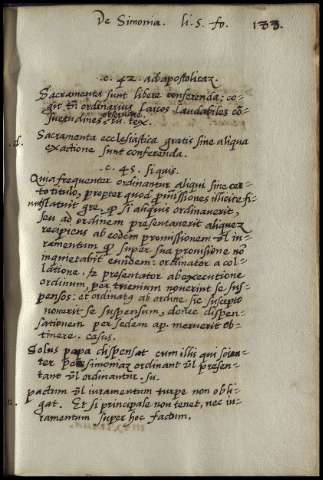 De Simonia. li. 5. fo. 133.
c. 42. ad apostolicaz.
Sacramenta sunt libere conferenda: co-
git tñ ordinarius laicos laudabiles cõ-
suetudines observare. su. tex.
Sacramenta ecclesiastica gratis sine aliqua
exactione sunt conferenda.
c. 45. si quis.
Quia frequenter ordinantur aliqui sine cer-
to titulo, propter quod promissiones illicite fi-
si aliquis ordinaverit,
seu ad ordinem presentaverit aliquez
recipiens ab eodem promissionem vl iu-
ramentum super sua provisione nõ
inquietabit eundem: ordinator a col-
latione, presentator ab executione
ordinum, per trienium noverint se sus-
pensos: et ordinatꝰ ab ordine sic suscepto
noverit se suspensum, donec dispen-
sationem per sedem ap. meruerit ob-
tinere. casus.
Solus papa dispensat cum illis qui scien-
ter per simoniaz ordinant vl presen-
tant vl ordinantur. su.
pactum vl iuramentum turpe non obli-
gat. Et si principale non tenet, nec iu-
ramentum super hoc factum.